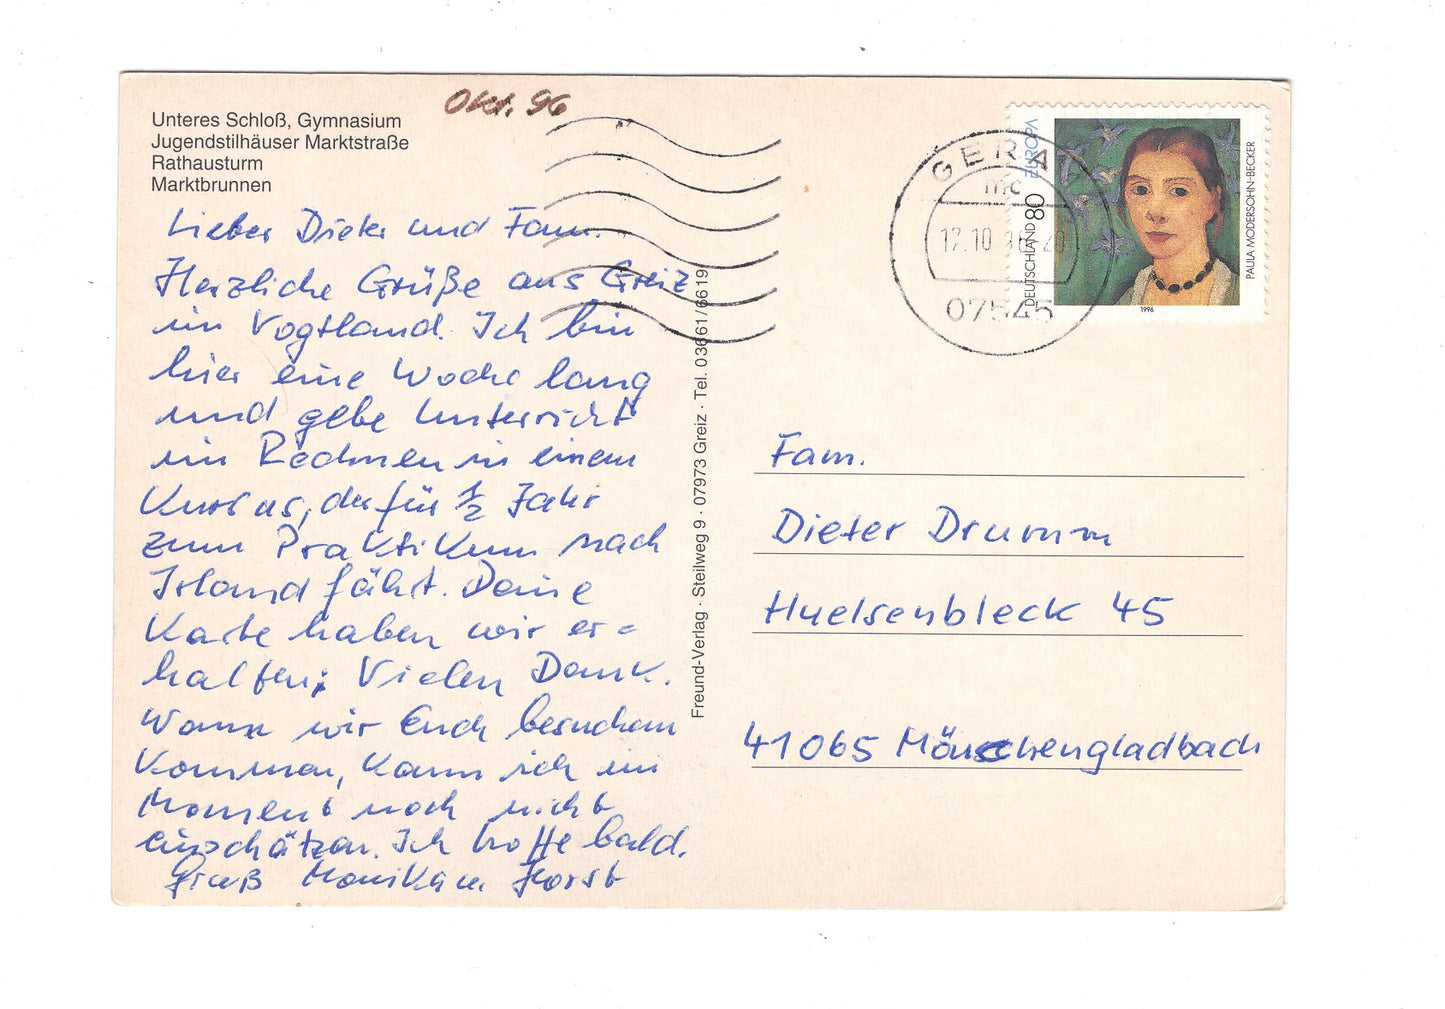 Okt. 96
Unteres Schloß, Gymnasium
Jugendstilhäuser Marktstraße
Rathausturm
Marktbrunnen
Lieber Dieter und Fam.
Herzliche Grüße aus Greiz
im Vogtland. Ich bin
hier eine Woche lang
und gebe Unterricht
im Rechnen in einem
Kursus, der für 1/2 Jahr
zum Praktikum nach
Irland fährt. Deine
Karte haben wir er=
halten; Vielen Dank.
Wann wir Euch besuchen
kommen, kann ich im
Moment noch nicht
einschätzen. Ich hoffe bald.
Gruß Monika u. Horst
Freund-Verlag · Steilweg 9 · 07973 Greiz · Tel. 03661/6619
GERA
mc
17.10.96-20
07545
DEUTSCHLAND 80 EUROPA
PAULA MODERSOHN-BECKER
1996
Fam.
Dieter Drumm
Huelsenbleck 45
41065 Mönchengladbach